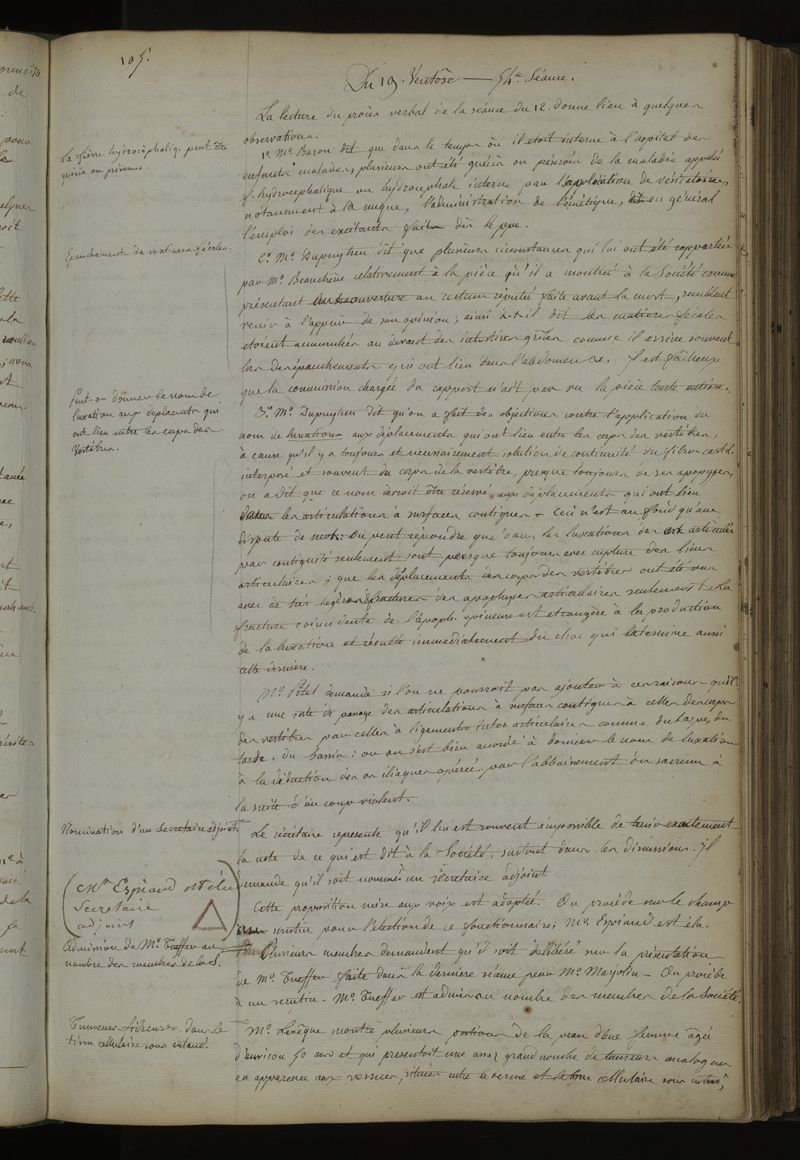 105.
Du 19. Ventôse — 54e Séance.
La lecture du procès verbal de la séance du 12. donne lieu à quelques
observations.
La fièvre hydrocéphaliq. peut être
guérie ou prévenue.
1o. Mr. Baron dit que dans le temps où il etoit interne à l'hopital des
enfants malades, plusieurs ont été guéris ou préservés de la maladie appelée
f. hydrocephalique ou hydrocephale interne par l'application de vésicatoires,
notamment à la nuque, l'administration de l'émétique, et en général
l'emploi des excitants
Epanchement de matieres fécales.
2o. Mr. Dupuytren dit que plusieurs circonstances qui lui ont été rapportées
par Mr. Beauchêne relativement à la pièce qu'il a montrée à la Société comme
présentant une ouverture au rectum réputée faite avant la mort, semblent
venir à l'appui de son opinion; ainsi a-t-il dit les matieres fécales
etoient accumulées au devant des intestins grêles comme il arrive souvent
lors des épanchements qui ont lieu dans l'abdomen &. Il est fâcheux
que la commission chargée du rapport n'ait pas vu la pièce toute entière.
Peut-on donner le nom de
luxation aux déplacemts qui
ont lieu entre les corps des
vertèbres.
3o. Mr. Dupuytren dit qu'on a fait des objections contre l'application du
nom de luxations aux déplacements qui ont lieu entre les corps des vertèbres,
à cause qu'il y a toujours et nécessairement solution de continuité du fibro-cartil.
interposé et souvent du corps de la vertèbre, presque toujours de ses apophyses,
on a dit que ce nom devait être réservé aux déplacements qui ont lieu
dans les articulations à surfaces contigues - Ceci n'est au fond qu'une
dispute de mots: on peut répondre que dans les luxations des articulés
par contiguité seulement sont presque toujours avec rupture des liens
articulaires; que les déplacements des corps des vertèbres ont été vus
avec de très légères fractures des apophyses articulaires seulement & la
fracture coincidente de l'apoph. epineuse est etrangère à la production
de la luxation et résulte immédiatement du choc qui détermine aussi
cette dernière.
Mr. Pitet demande si l'on ne pourroit pas ajouter à ces raisons qu'il
y a une sorte de passage des articulations à surfaces contigues à celles des corps
des vertèbres par celles à ligaments inter articulaires comme du carpe, du
tarse, du bassin; or on s'est bien accordé à donner le nom de luxation
à la déduction des os iliaques opérée par l'abbaissement du sacrum à
la suite d'un coup violent.
Nomination d'un Secretaire adjoint
Le sécrétaire represente qu'il lui est souvent impossible de tenir exactement
la note de ce qui est dit à la Société, surtout dans les discussions. Il
demande qu'il soit nommé un sécretaire adjoint.
Mr Espiaud est élu
Secretaire
adjoint
Cette proposition mise aux voix est adoptée. On procède sur le champ
au scrutin pour l'élection de ce fonctionnaire; Mr. Espiaud est élu.
Admission de Mr. Tueffer au
nombre des membres de la S.
Plusieurs membres demandent qu'il soit délibéré sur la présentation
de Mr. Tueffer faite dans la derniere séance par Mr. Marjolin - On procède
à un scrutin. Mr. Tueffer est admis au nombre des membres de la Société.
Tumeurs fibreuses dans le
tissu cellulaire sous cutané.
Mr. Levêque montre plusieurs portions de la peau d'une femme âgée
d'environ 50 ans et qui presentoit une assez grand nombre de tumeurs analogues
en apparence aux verrues, situées entre le derme et le tissu cellulaire sous cutané;